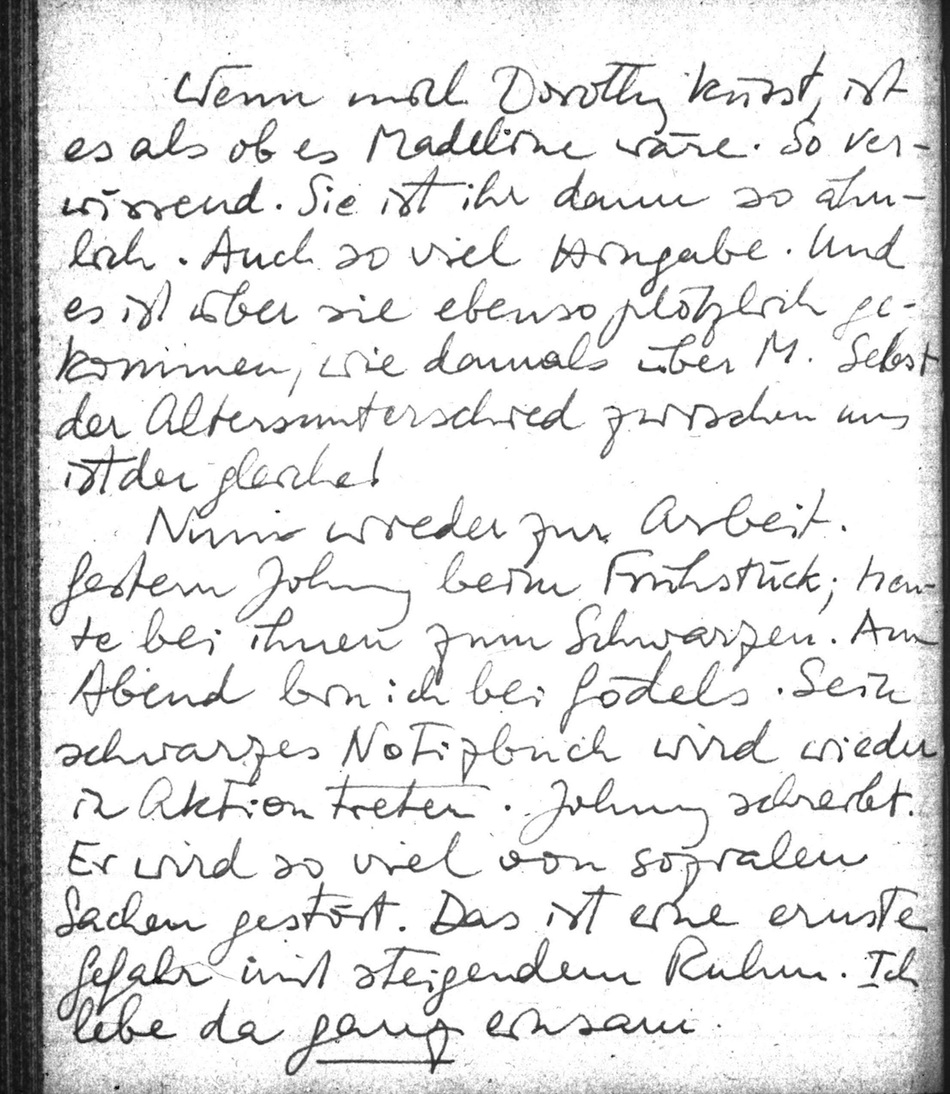 Wenn mich Dorothy küsst, ist
es als ob es Madeleine wäre. So ver-
wirrend. Sie ist ihr dann so ähn-
lich. Auch so viel Hingabe. Und
es ist über sie ebenso plötzlich ge-
kommen, wie damals über M. Selbst
der Altersunterschied zwischen uns
ist der gleiche!
Nun wieder zur Arbeit.
Gestern Johnny beim Frühstück; heu-
te bei ihnen zum Schwarzen. Am
Abend bin ich bei Gödels. Sein
schwarzes Notizbuch wird wieder
in Aktion treten. Johnny schreibt.
Er wird so viel von sozialen
Sachen gestört. Das ist eine ernste
Gefahr mit steigendem Ruhm. Ich
lebe da ganz einsam.